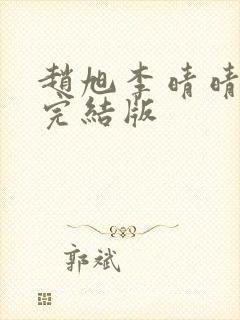 趙旭李晴晴
完結版
郭斌